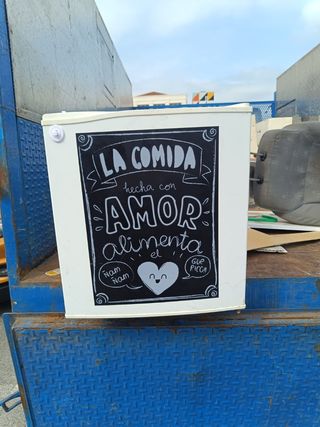 LA COMIDA
hecha con
AMOR
alimenta
el
ÑAM
ÑAM
QUE
RICO!